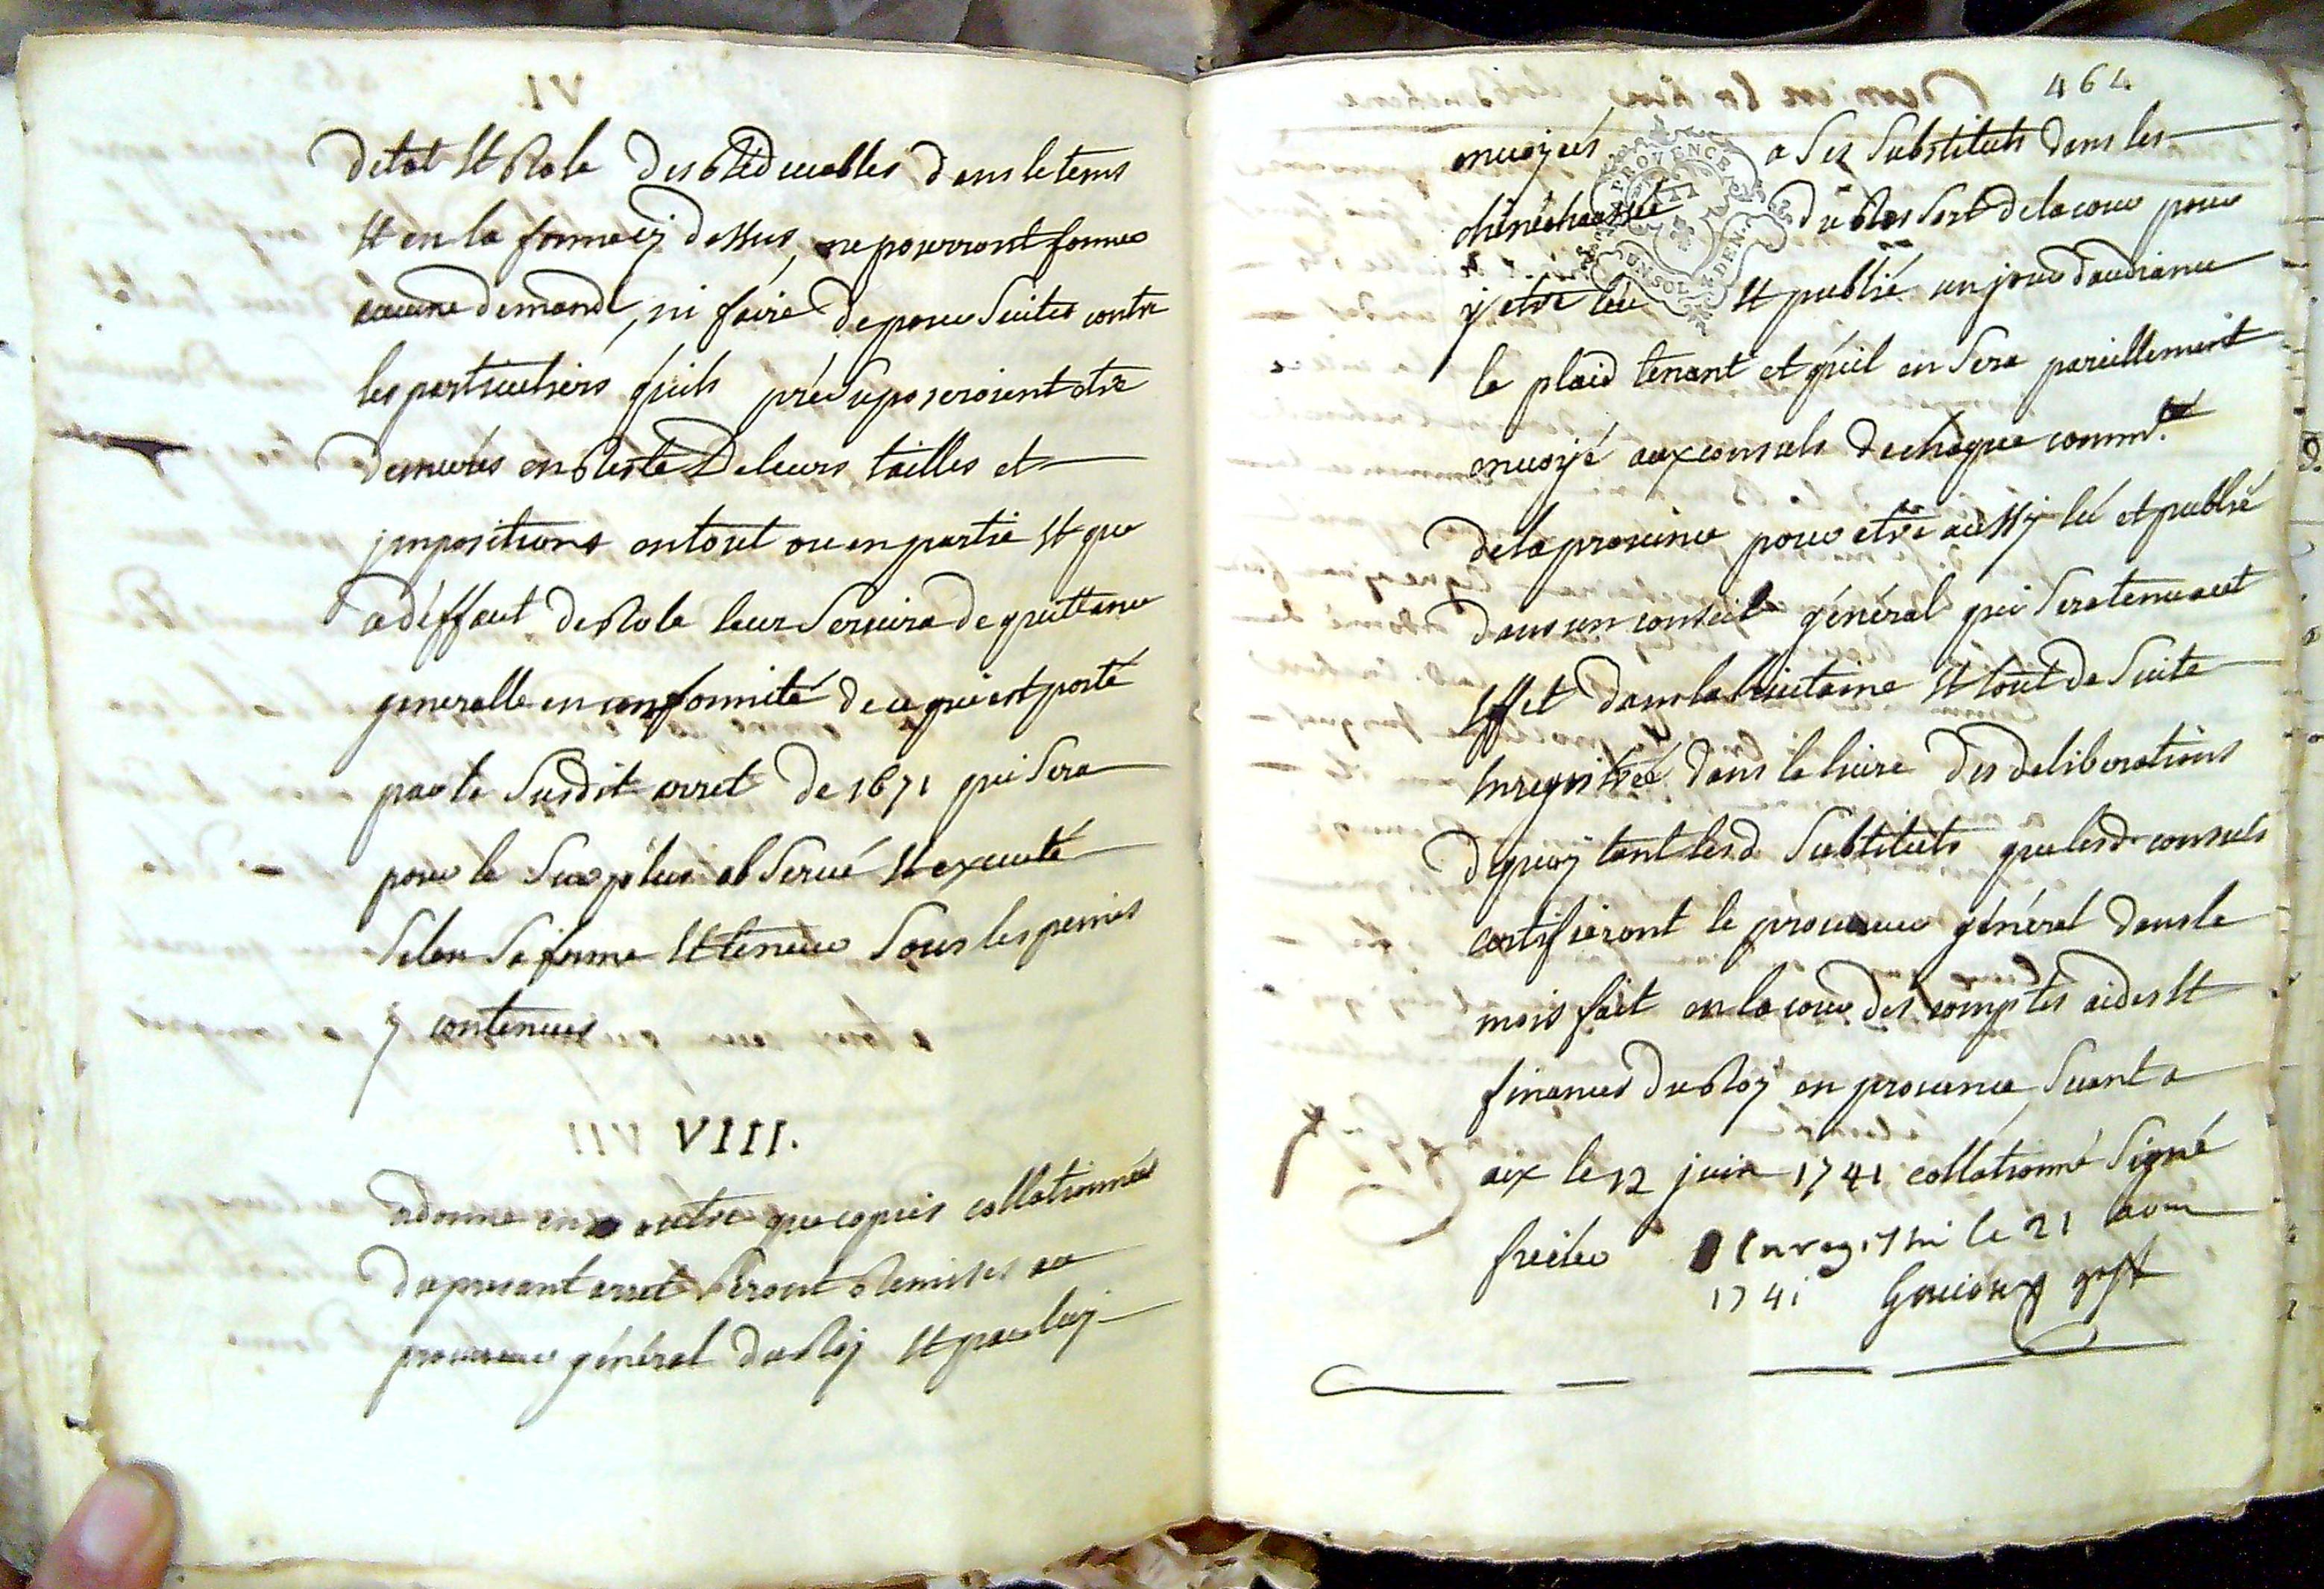 detat Et Role des Redeuables dans le tems
Et en la forme cy dessus, ne pourront former
aucune demande, ni faire de poursuites contre
les particuliers quils présuposeroient etre
demeurés en Reste de leurs tailles et
jmpositions en tout ou en partie Et que
a déffaut de Role leur seruira de quittance
generalle en conformité de ce qui est porté
par le susdit arret de 1671 qui sera
pour le surplus obserué Et executé
selon sa forme Et teneur sous les peines
y contenues
VIII.
adonne en outre que copies collationnées
du present arret seront Remises au
procureur général du Roy Et par luy
464
enuoyées a ses substituts dans les
chénéchaussée du Ressort de la cour pour
y etre leu Et publié un jour daudiance
le plaid tenant et quil en sera pareillement
enuoyé aux consuls de chaque commté
de la prouince pour etre aussy lû et publié
dans un conseil général qui sera tenu a cet
Effet dans la huitaine Et tout de suite
Enregistrée dans le liure des deliberations
dequoy tant lesd substituts que lesd consuls
certifieront le procureur général dans le
mois fait en la cour des comptes aides Et
finances du Roy en prouence seant a
aix le 12 juin 1741 collationné signé
freilec Enregistré le 21 aoun
1741 greff